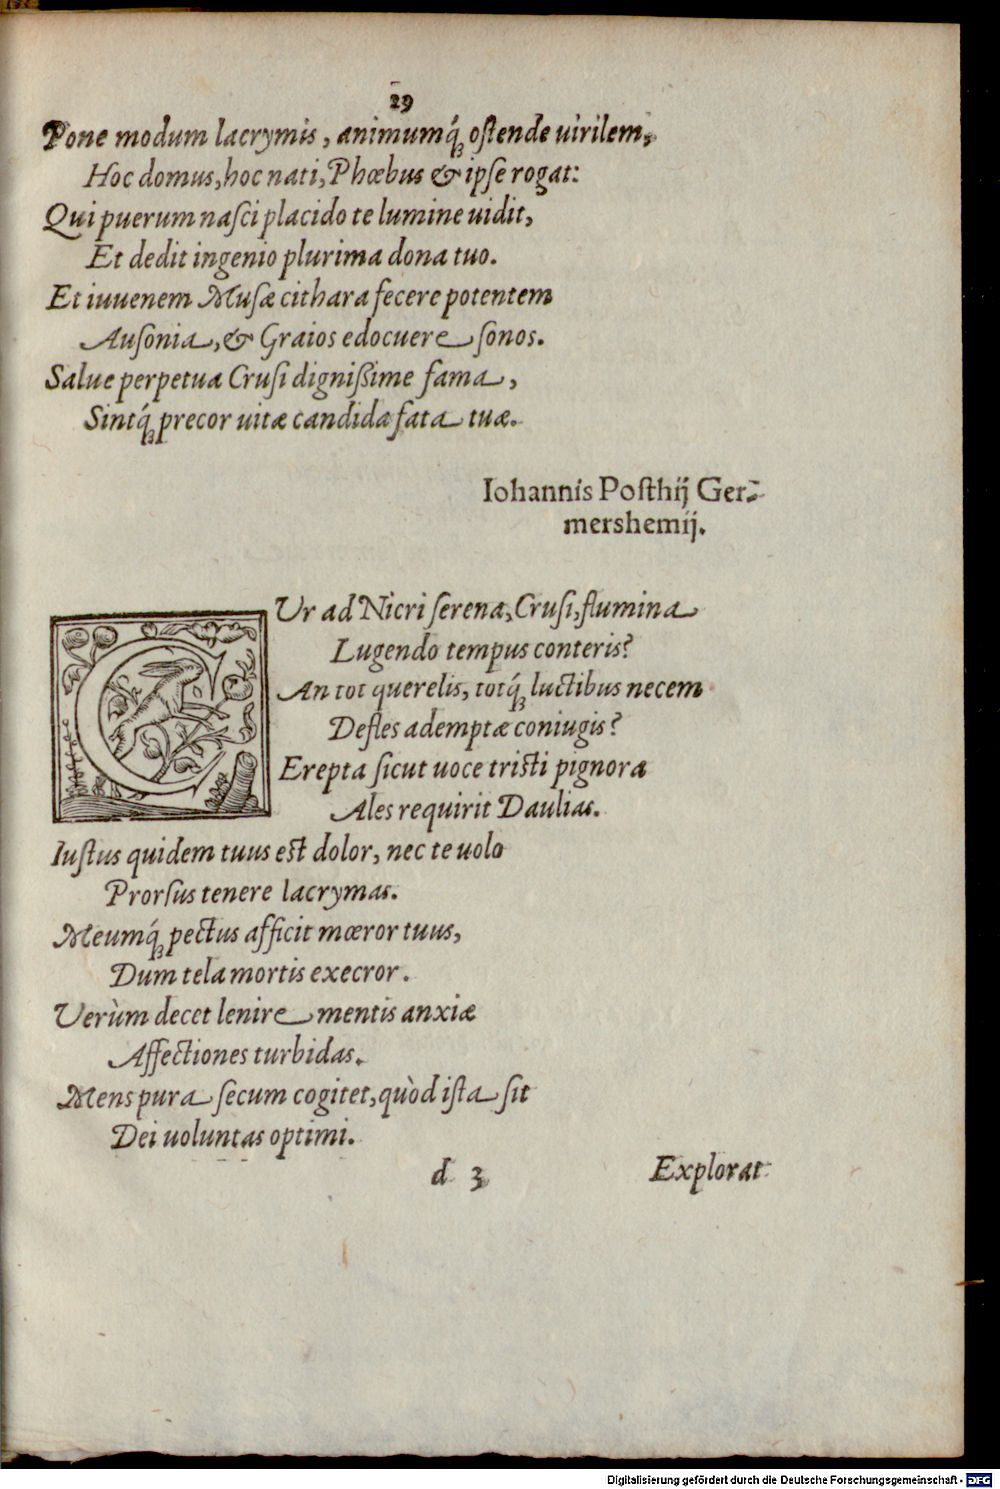 29
Pone modum lacrymis, animumq́ꝫ ostende uirilem,
Hoc domus, hoc nati, Phœbus & ipse rogat:
Qui puerum nasci placido te lumine uidit,
Et dedit ingenio plurima dona tuo.
Et iuuenem Musæ cithara fecere potentem
Ausonia, & Graios edocuere sonos.
Salue perpetua Crusi dignißime fama,
Sintq́ꝫ precor uitæ candida fata tuæ.
Iohannis Posthij Ger-
mershemij.
CVr ad Nicri serena, Crusi, flumina
Lugendo tempus conteris?
An tot querelis, totq́ꝫ luctibus necem
Defles ademptæ coniugis?
Erepta sicut uoce tristi pignora
Ales requirit Daulias.
Iustus quidem tuus est dolor, nec te uolo
Prorsus tenere lacrymas.
Meumq́ꝫ pectus afficit mœror tuus,
Dum tela mortis execror.
Verùm decet lenire mentis anxiæ
Affectiones turbidas.
Mens pura secum cogitet, quòd ista sit
Dei uoluntas optimi.
d 3 Explorat
Digitalisierung gefördert durch die Deutsche Forschungsgemeinschaft - DFG